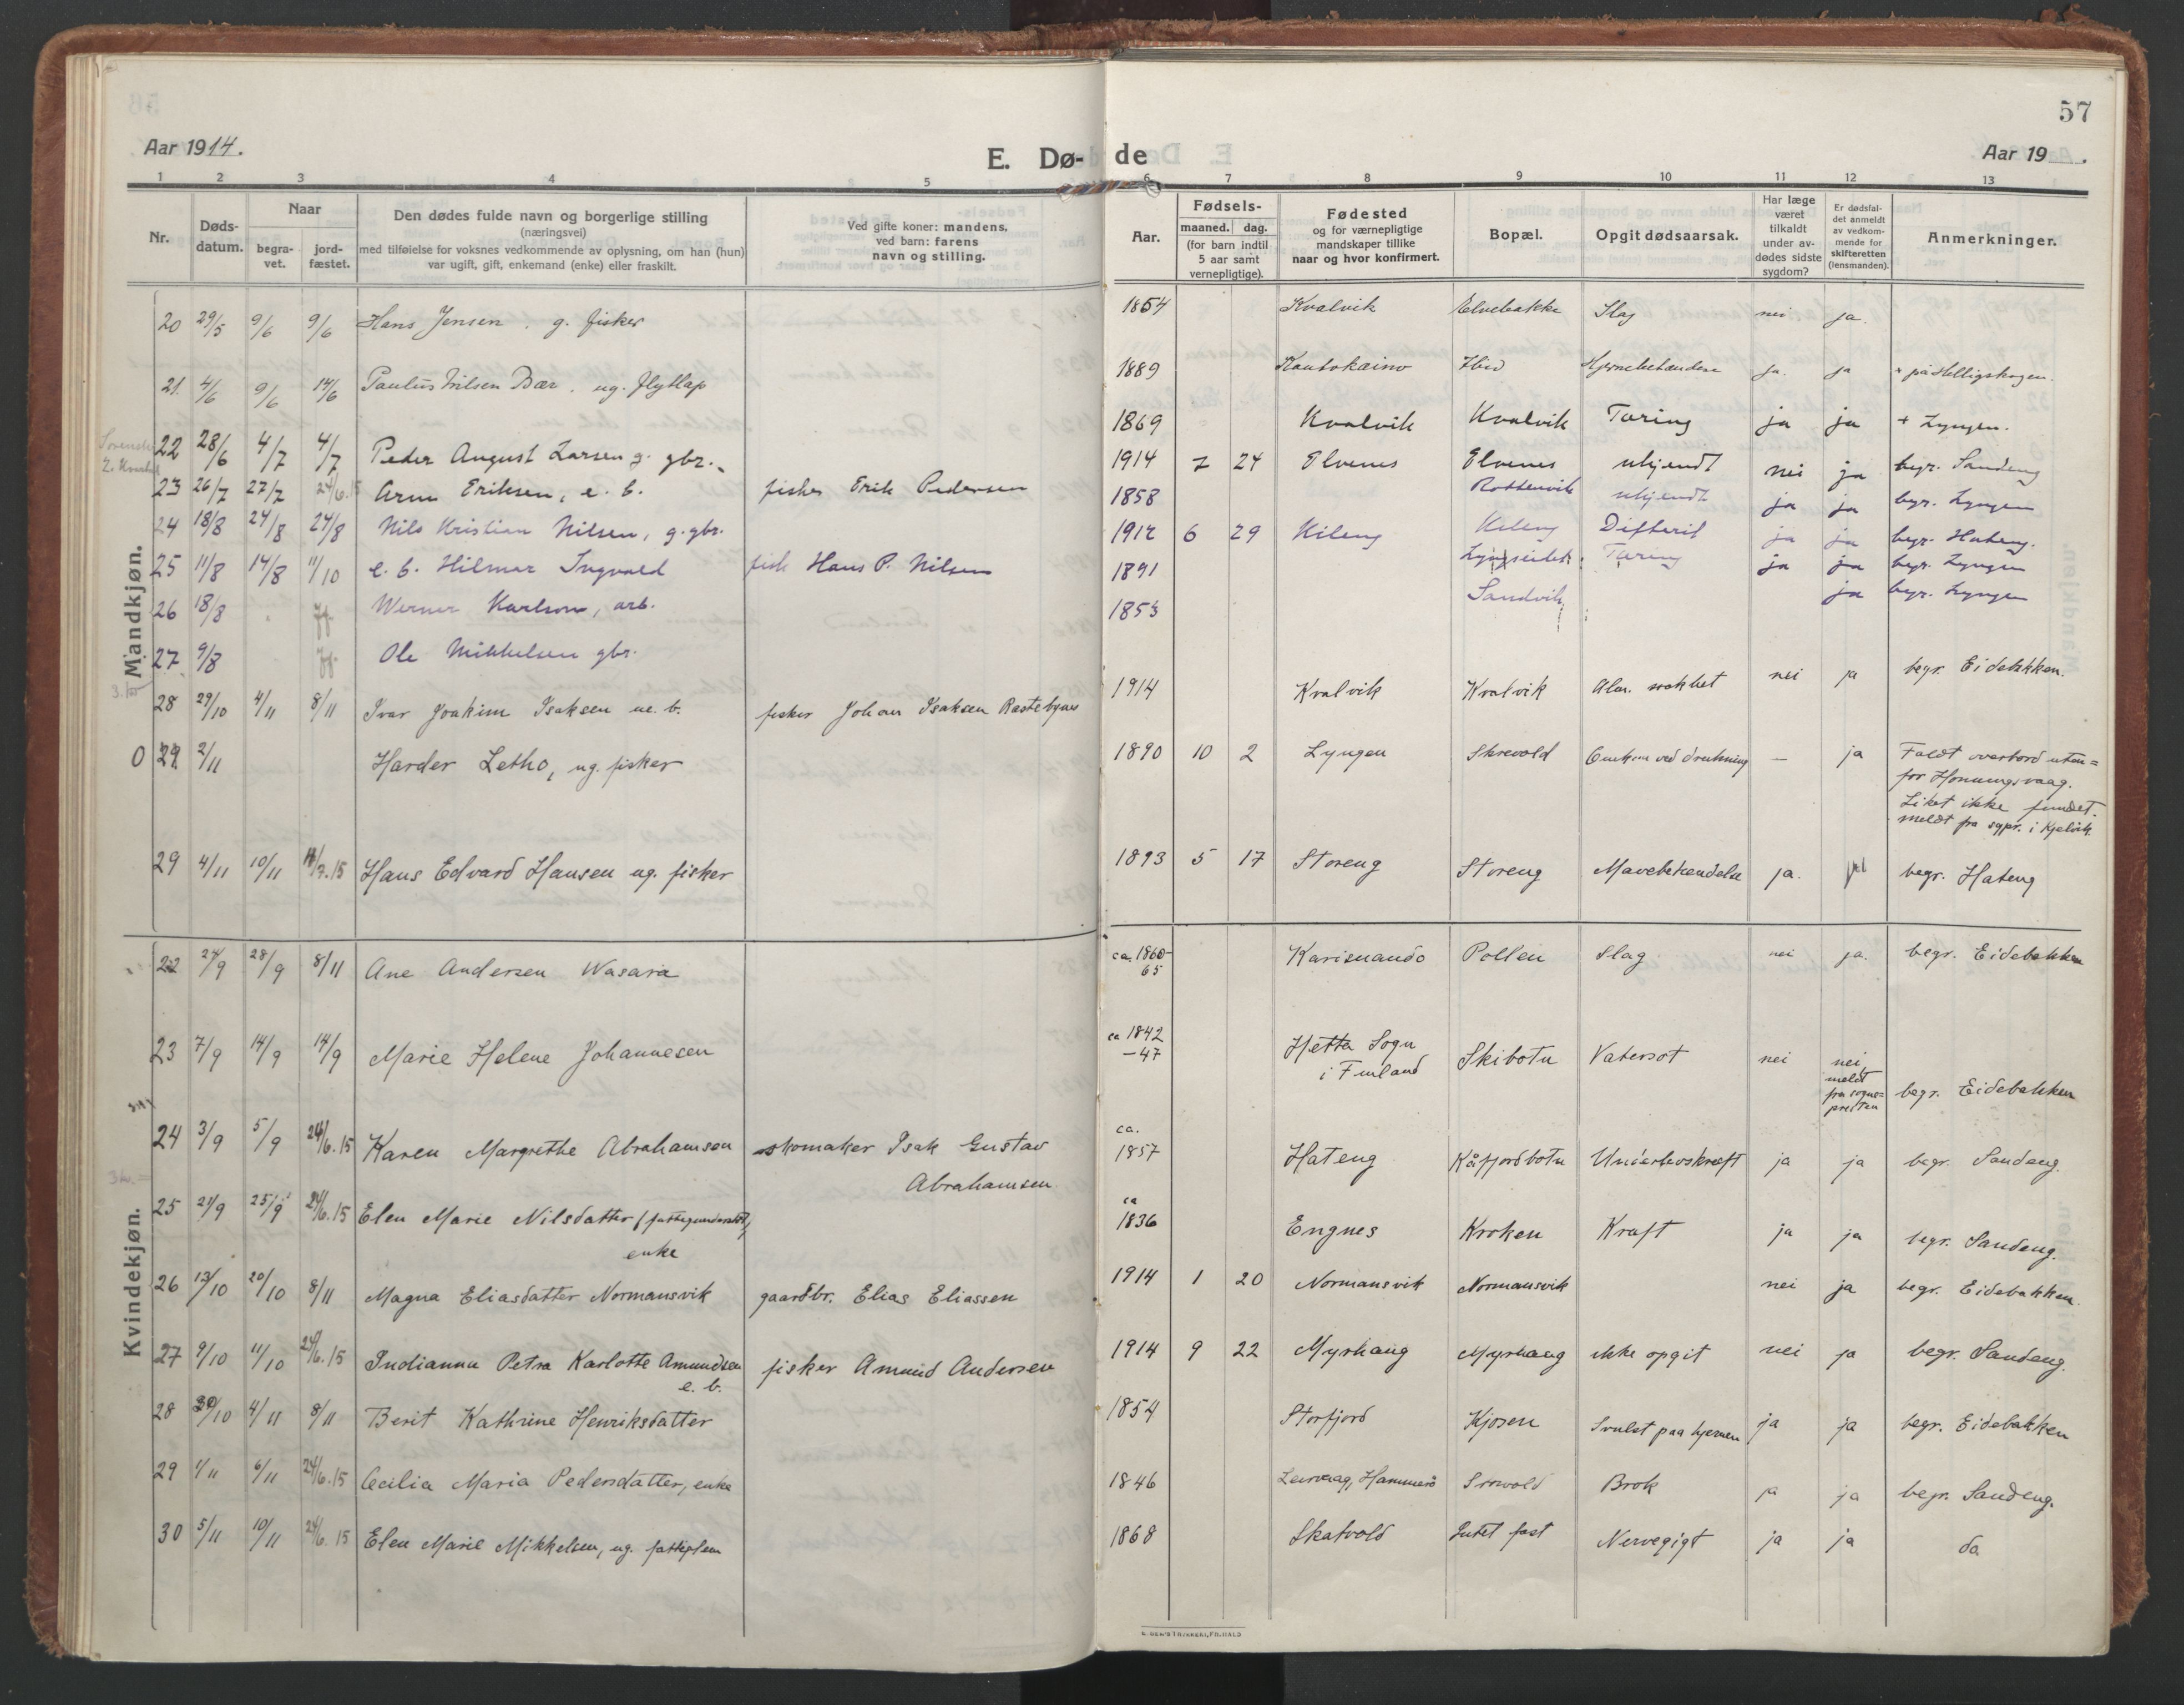 57
Aar 1914.
E. Dø-de
Aar 19 .
1 2 3 4 5 6 7 8 9 10 11 12 13
Nr.
Døds-datum.
Naar
begra-vet.
jord-fæstet.
Den dødes fulde navn og borgerlige stilling
(næringsvei)
med tilføielse for voksnes vedkommende av oplysning, om han (hun)
var ugift, gift, enkemand (enke) eller fraskilt.
Ved gifte koner: mandens,
ved barn: farens
navn og stilling.
Aar.
Fødsels-
maaned. dag.
(for barn indtil
5 aar samt
vernepligtige).
Fødested
og for værnepligtige
mandskaper tillike
naar og hvor konfirmert.
Bopæl.
Opgit dødsaarsak.
Har læge
været
tilkaldt
under av-
dødes sidste
sygdom?
Er dødsfal-
det anmeldt
av vedkom-
mende for
skifteretten
(lensmanden).
Anmerkninger.
Mandkjøn.
20 29/5 9/6 9/6 Hans Jensen, g. fisker 1854 Kvalvik Elvebakke Slag nei ja.
21. 4/6 9/6 14/6 Paulus Nilsen Bær. ug. flytlap 1889 Kautokeino Ibid Hjernebetændelse ja. ja + på Helligskogen.
22 28/6 4/7 4/7 Peder August Larsen g. gbr. 1869 Kvalvik Kvalvik Tæring ja ja + Lyngen.
23 26/7 27/7 24/6.15 Arne Eriksen, e. b. fisker Erik Pedersen 1914 7 24 Elvenes Elvenes ukjendt nei ja begr. Sandeng
24 18/8 24/8 24/8 Nils Kristian Nilsen, g. gbr. 1858 Rottenvik ukjendt ja ja begr. Lyngen
25 11/8 14/8 11/10 e. b. Hilmar Ingvald fisk Hans P. Nilsen 1912 6 29 Kileng Kileng Difterit ja ja begr. Hateng.
26 18/8 Werner Karlson, arb. 1891 Lyngseidet Tæring ja ja begr. Lyngen
27 9/8 Ole Mikkelsen gbr. 1853 Sandvik ja begr. Lyngen
28 29/10 4/11 8/11 Ivar Joakim Isaksen ue. b. fisker Johan Isaksen Rastebynes 1914 Kvalvik Kvalvik Alm. svakhet nei ja begr. Eidebakken.
0 29. 2/11 Harder Letho, ug. fisker 1890 10 2 Lyngen Skrevold Omkom ved drukning — ja Faldt overbord uten=
for Honningsvaag.
Liket ikke fundet.
meldt fra sogpr. i Kjelvik.
29 4/11 10/11 11/7.15 Hans Edvard Hansen ug. fisker 1893 5 17 Storeng Storeng Mavebetændelse ja. begr. Hateng
Kvindekjøn.
22 24/9 28/9 8/11 Ane Andersen Wasara ca. 1860-65 Karisuando Pollen Slag nei ja. begr. Eidebakken
23 7/9 14/9 14/9 Marie Helene Johannesen ca 1842-47 Hetta Sogn
i Finland Skibotn Vatersot nei nei,
meldt
fra sogne=
presten begr. Eidebakken
24 3/9 5/9 24/6.15 Karen Margrethe Abrahamsen skomaker Isak Gustav
Abrahamsen. ca. 1857 Hateng Kåfjordbotn Underlivskræft ja ja begr. Sandeng.
25 21/9 25/9 24/6.15 Elen Marie Nilsdatter (fattigunderstøt.)
enke ca 1836 Engnes Kroken Kraft ja ja begr. Sandeng.
26 13/10 20/10 8/11 Magna Eliasdatter Normansvik gaardbr. Elias Eliassen 1914 1 20 Normansvik Normansvik nei ja begr. Eidebakken.
27 9/10 11/10 24/6.15 Indianna Petra Karlotte Amundsen
e. b. fisker Amund Andersen 1914 9 22 Myrhaug Myrhaug ikke opgit nei ja begr. Sandeng.
28 30/10 4/11 8/11 Berit Kathrine Henriksdatter 1854 Storfjord Kjosen Svulst paa hjernen ja ja begr. Eidebakken
29 1/11 6/11 24/6.15 Cecilia Maria Pedersdatter, enke 1846 Leirvaag, Hammerö Brok ja ja begr. Sandeng.
30 5/11 10/11 24/6.15 Elen Marie Mikkelsen, ug. fattiglem 1868 Skatvold Intet fast Nervegigt ja ja da